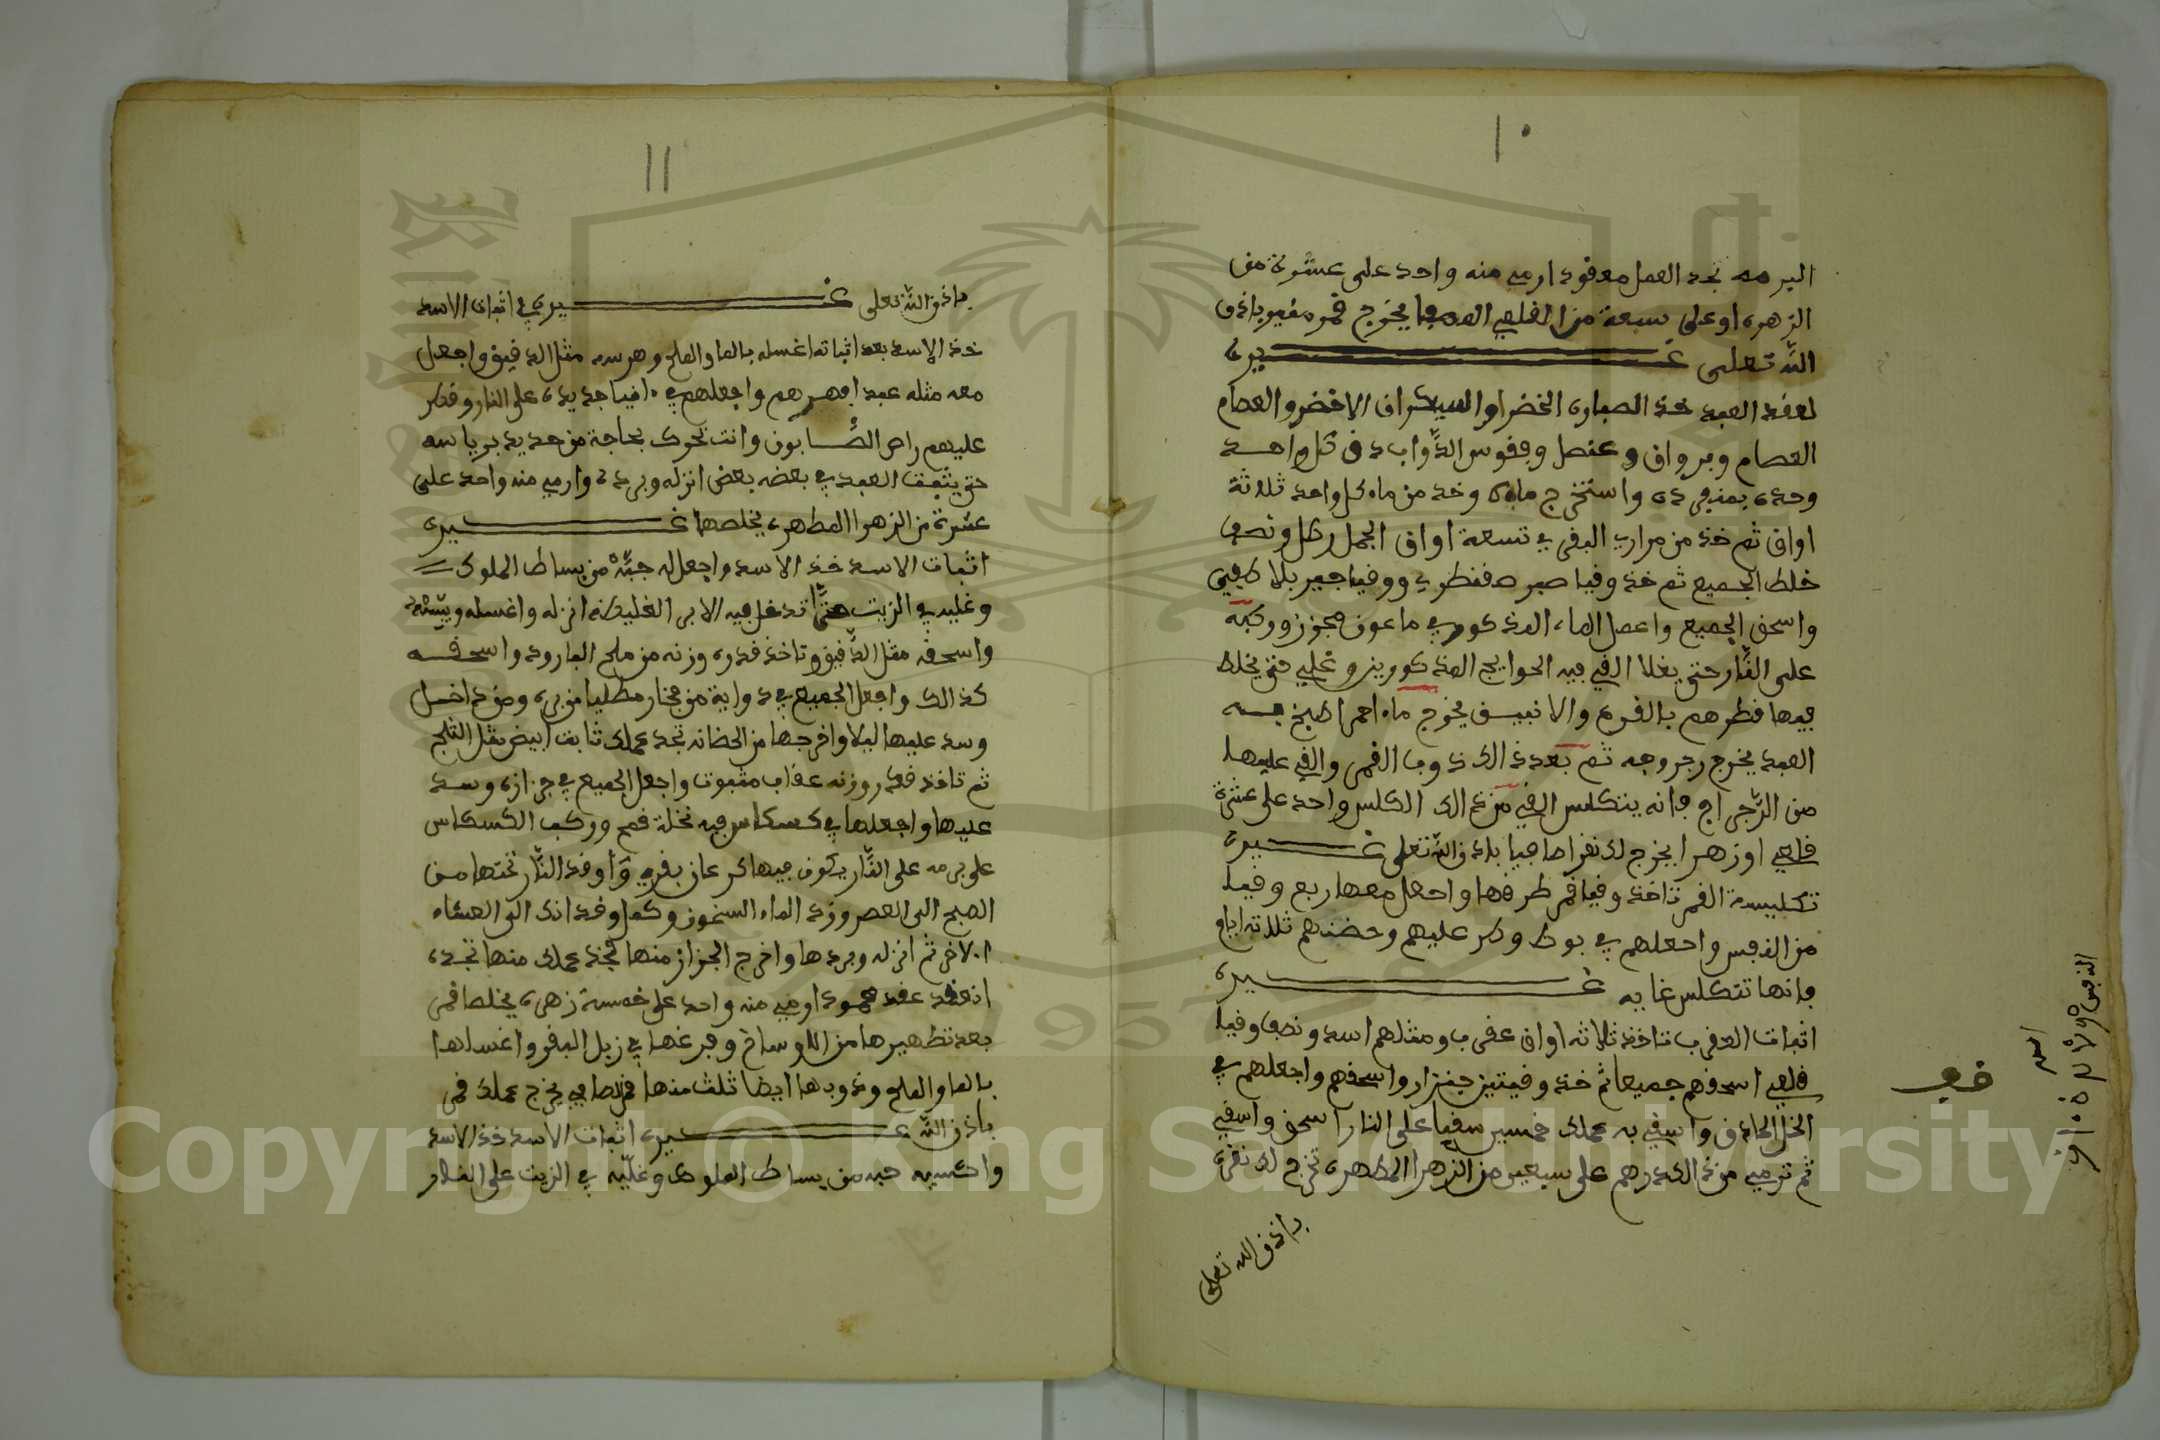 ١٠
البرمه تجد العمل معقود ارمي منه واحد على عشرة من
الزهره او على سبعة من القلعي المصفا يخرج قمر مغير باذن
الله تعلى غيره
لعقد العبد خذ الصباره الخضرا والسيكران الاخضر والعصام
القصام وبرواق وعنصل وفقوس الدواب دق كل واحد
وحده بمفرده واستخرج ماه وخذ من ماء كل واحد ثلاثة
اواق ثم خذ من مرارت البقر تسعة اواق الجمل رطل ونصف
خلط الجميع ثم خذ وقيا صبر صقنطري ووقيا جير بلا طفي
واسحق الجميع واعمل الماء المذكور في ماعون مجوز وركبه
على النار حتى يغلا القي فيه الحوايج المذكورين وغلي حتى يخلط
فيها قطرهم بالقرع والانبيق يخرج ماء احمر اطبخ به
العبد يخرج رجروجه ثم بعد ذالك ذوب القمر والقي عليها
من الرجراج فانه يتكلس القي من ذالك الكلس واحد على عشرة
قلعي او زهرا يخرج لك نقرا صافيا باذن الله تعلى غيره
تكليسة القمر تاخذ وقيا قمر طرقها واجعل معها ربع وقيا
من الذقبس واجعلهم في بوط وكر عليهم وحضنهم ثلاثة ايام
فانها تتكلس غايه غيره
اثبات العقرب تاخذ ثلاثه اواق عقرب ومثلهم اسد ونصف وقيا
قلعي اسحقهم جميعا ثم خذ وقيتين جنزار واسحقهم واجعلهم في
الخل الحاذق واسقي به عملك خمسين سقيا على النار اسحق واسقي
ثم ترمي من ذالك درهم على سبعين من الزهرا المطهره تخرج لك نقره
باذن الله تعلى
١١
باذن الله تعلى غيره في اثبات الاسد
خذ الاسد بعد اثباته اغسله بالما والملح وهرسه مثل الدقيق واجعل
معه مثله عبد افهرهم واجعلهم في انيا جديده على النار وقطر
عليهم راس الصابون وانت تحرك بحاجة من حديد برياسه
حتى يثبت العبد في بعضه بعض انزله وبرده وارمي منه واحد على
عشرة من الزهرا المطهره يخلصها غيره
اثبات الاسد خذ الاسد واجعل له جبة من بساط الملوك
وغليه في الزيت حتى تدخل فيه الابر الغليظه انزله واغسله وييبسه
واسحقه مثل الدقيق وتاخذ قدر وزنه من ملح البارود واسحقه
كذالك واجعل الجميع في دواية من فخار مطليا من بره ومن داخل
وسد عليها ليلا واخرجها من الحضانه تجد عملك ثابت ابيض مثل الثلج
ثم تاخذ قدر وزنه عقاب مثبوت واجعل الجميع في جزازه وسد
عليها واجعلها في كسكاس فيه نخلة قمح وركب الكسكاس
على برمه على النار يكون فيها كرعان بقري وأوقد النار تحتها من
الصبح الى العصر وزد الماء السخون وكمل وقدانك الى العشاء
الاخر ثم انزله وبردها واخرج الجزاز منها تجد عملك منها تجده
انعقد عقد عمود اومي منه واحد على خمسة زهره يخلصا قمر
بعد تطهيرها من الاوساخ وفرغها في زبل البقر واغسلها
بالما والملح وذوبها ايضا ثلث منها قمر صافي يخرج عملك قمر
باذن الله غيره اثبات الاسد خذ الاسد
واكسيه جبه من بساط الملوك وغليه في الزيت على النار